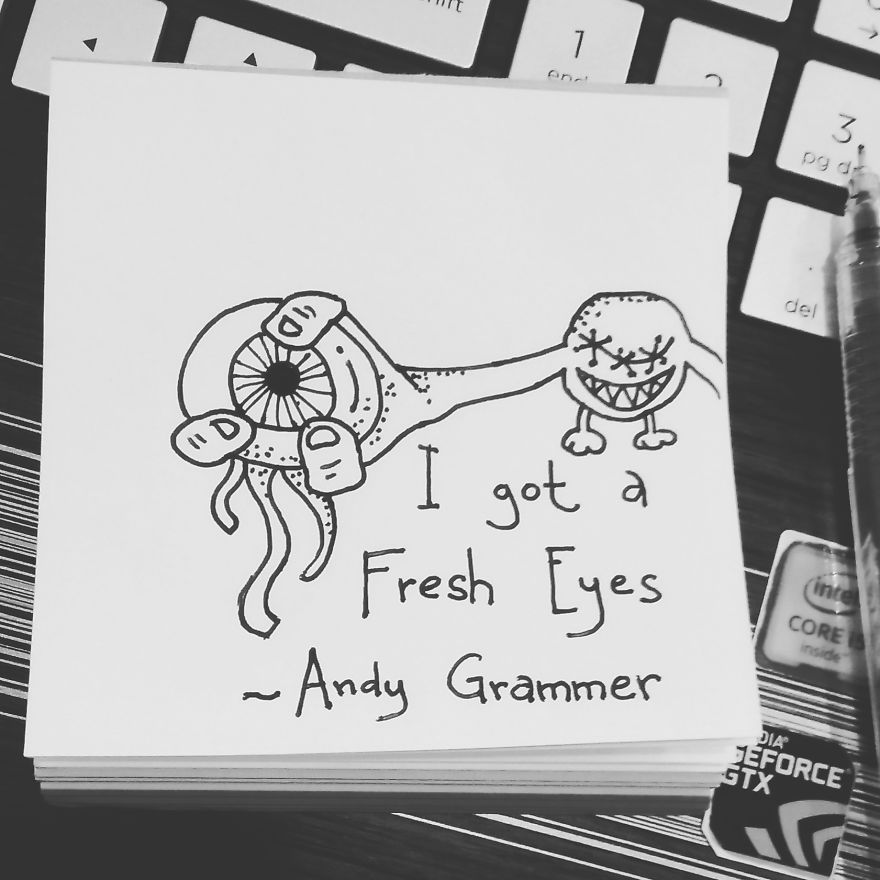 1
end
2
3
pg d
del
I got a
Fresh Eyes
~Andy Grammer
intel
CORE i5
inside
GEFORCE
GTX